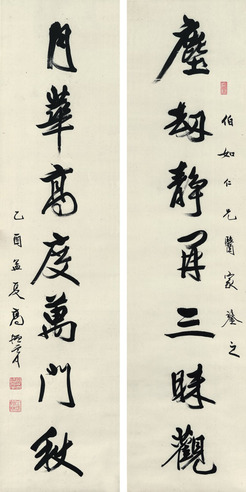 伯如仁兄醫家鑒之
塵劫靜回三昧觀
月華高度萬門秋
乙酉孟夏高振霄